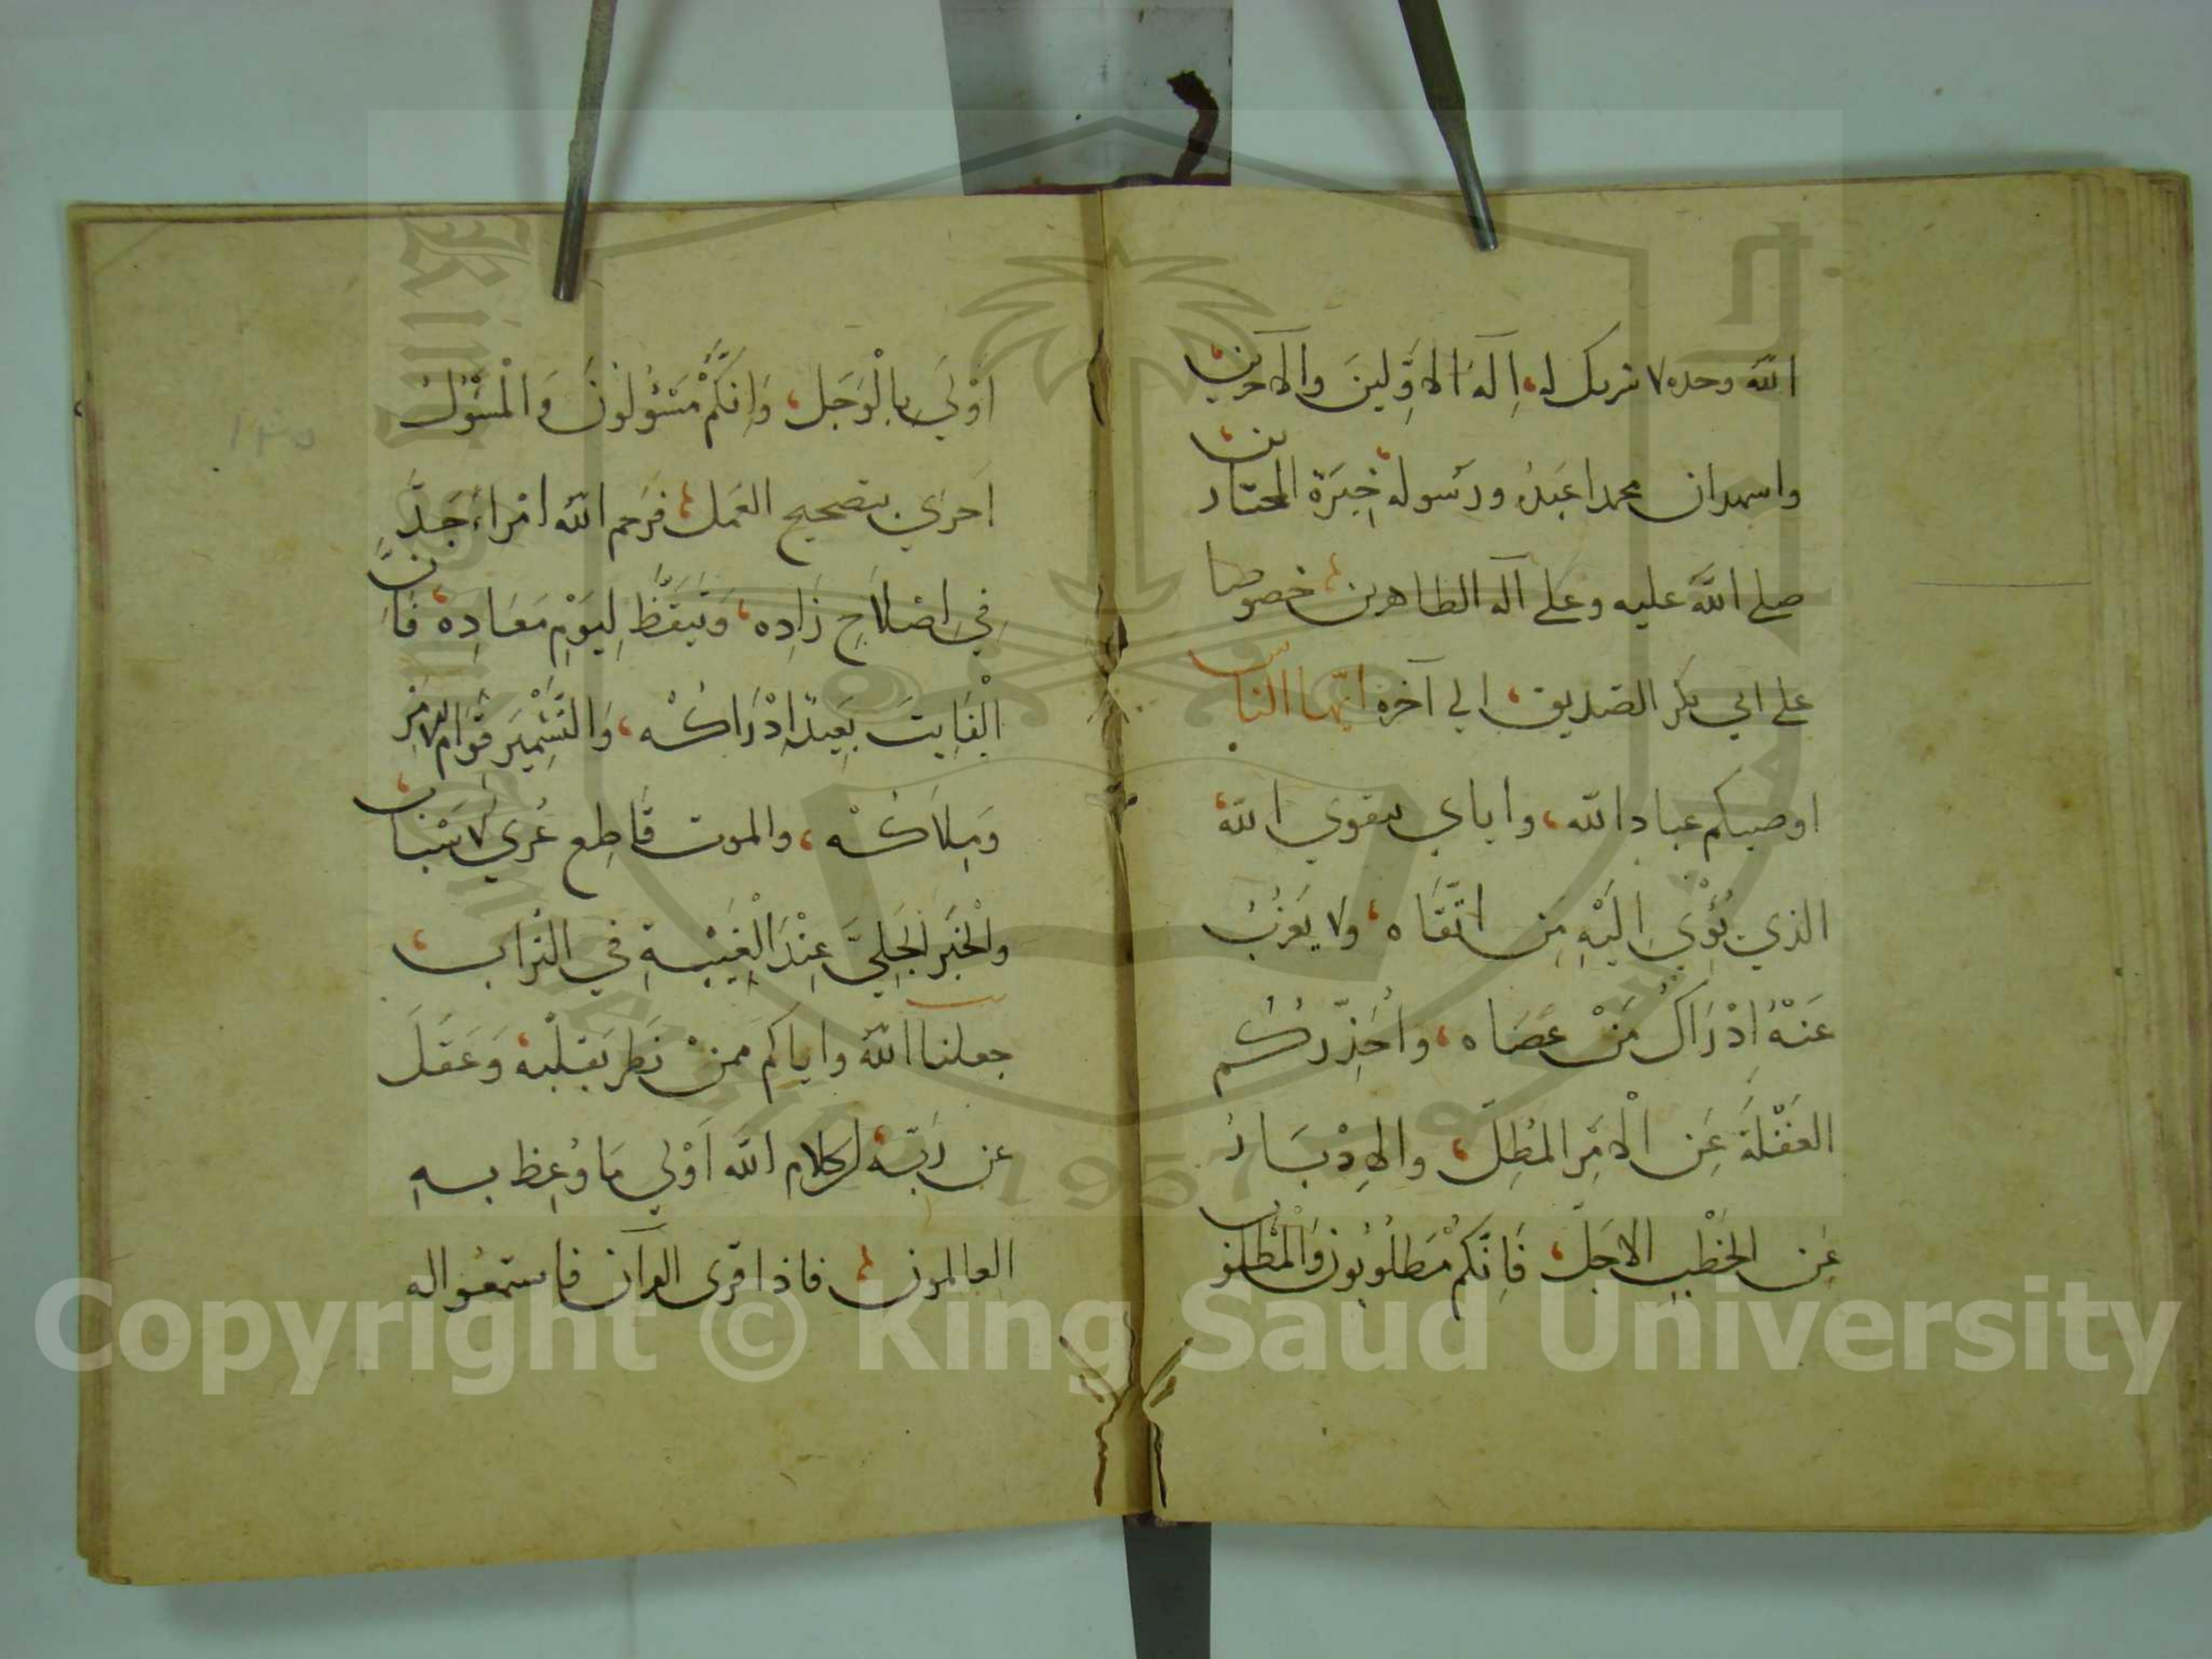 الله وحده لا شريك له، اِلَهُ الاوَّلِينَ والآخرين
واشهد ان محمدا عَبدُه ورسوله خِيَرَة المختارين
صلى الله عليه وعلى آله الطاهرين خصوصا
على ابي بكر الصديق الي آخره ايّها الناس
اوصيكم عباد الله، واياي بتقوي الله
الذي يُؤْوِي اِلَيْهِ مَن اتَّقَاه، ولا يَعْزُبُ
عَنْهُ اِدْرَاكُ مَنْ عَصَاه، واُحَذِّرُكُم
الغَفْلَةَ عَنِ الْامْرِ المُطِلّ، والاِدْبَارَ
عَنِ الخَطْبِ الاجَلّ، فَاِنَّكُمْ مَطلُوبُونَ وَالْمَطْلُوبُ
اَوْلَي بِالْوَجَل، وَاِنَّكُمْ مَسْؤُلُونَ وَالْمَسْؤُلُ
اَحْرَي بتصحيح العَمَل، فَرَحِم الله امْرَاءً جَدَّ
فِي اِصْلَاحِ زَادِه، وَتَيَقَّظَ لِيَوْمِ مَعَادِه، فَاِنَّ
الْفَايِتَ بَعِيدٌ اِدْرَاكُه، وَالتَّشْمِيرَ قِوَامُ الامْرِ
وَمِلَاكُه، والموت قَاطِع عُرَي الاسْبَاب،
والْخَبَر الجَلِيَّ عِنْدَ الْغَيْبَةِ في التراب،
جعلنا الله واياكم مِمنْ نَظر بقلبه، وَعَقَلَ
عن رَبّه، اِن كلام الله اَوْلي مَا وُعِظ بِهِ
العالمون، فاذا قرئ القرآن فاستمعوا له
Copyright © King Saud University
1957
١٣٥